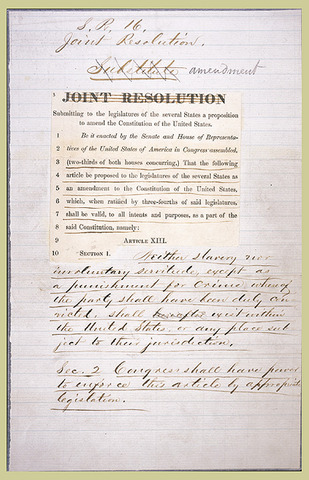 S. R. 16.
Joint Resolution.
Substitute amendment
JOINT RESOLUTION
Submitting to the legislatures of the several States a proposition
to amend the Constitution of the United States.
1 Be it enacted by the Senate and House of Representa-
2 tives of the United States of America in Congress assembled,
3 (two-thirds of both houses concurring,) That the following
4 article be proposed to the legislatures of the several States as
5 an amendment to the Constitution of the United States,
6 which, when ratified by three-fourths of said legislatures,
7 shall be valid, to all intents and purposes, as a part of the
8 said Constitution, namely:
9 ARTICLE XIII.
10 SECTION I. Neither slavery nor
involuntary servitude, except as
a punishment for crime, whereof
the party shall have been duly con-
victed, shall exist within
the United States, or any place sub
ject to their jurisdiction.
Sec. 2 Congress shall have power
to enforce this article by appropriate
legislation.